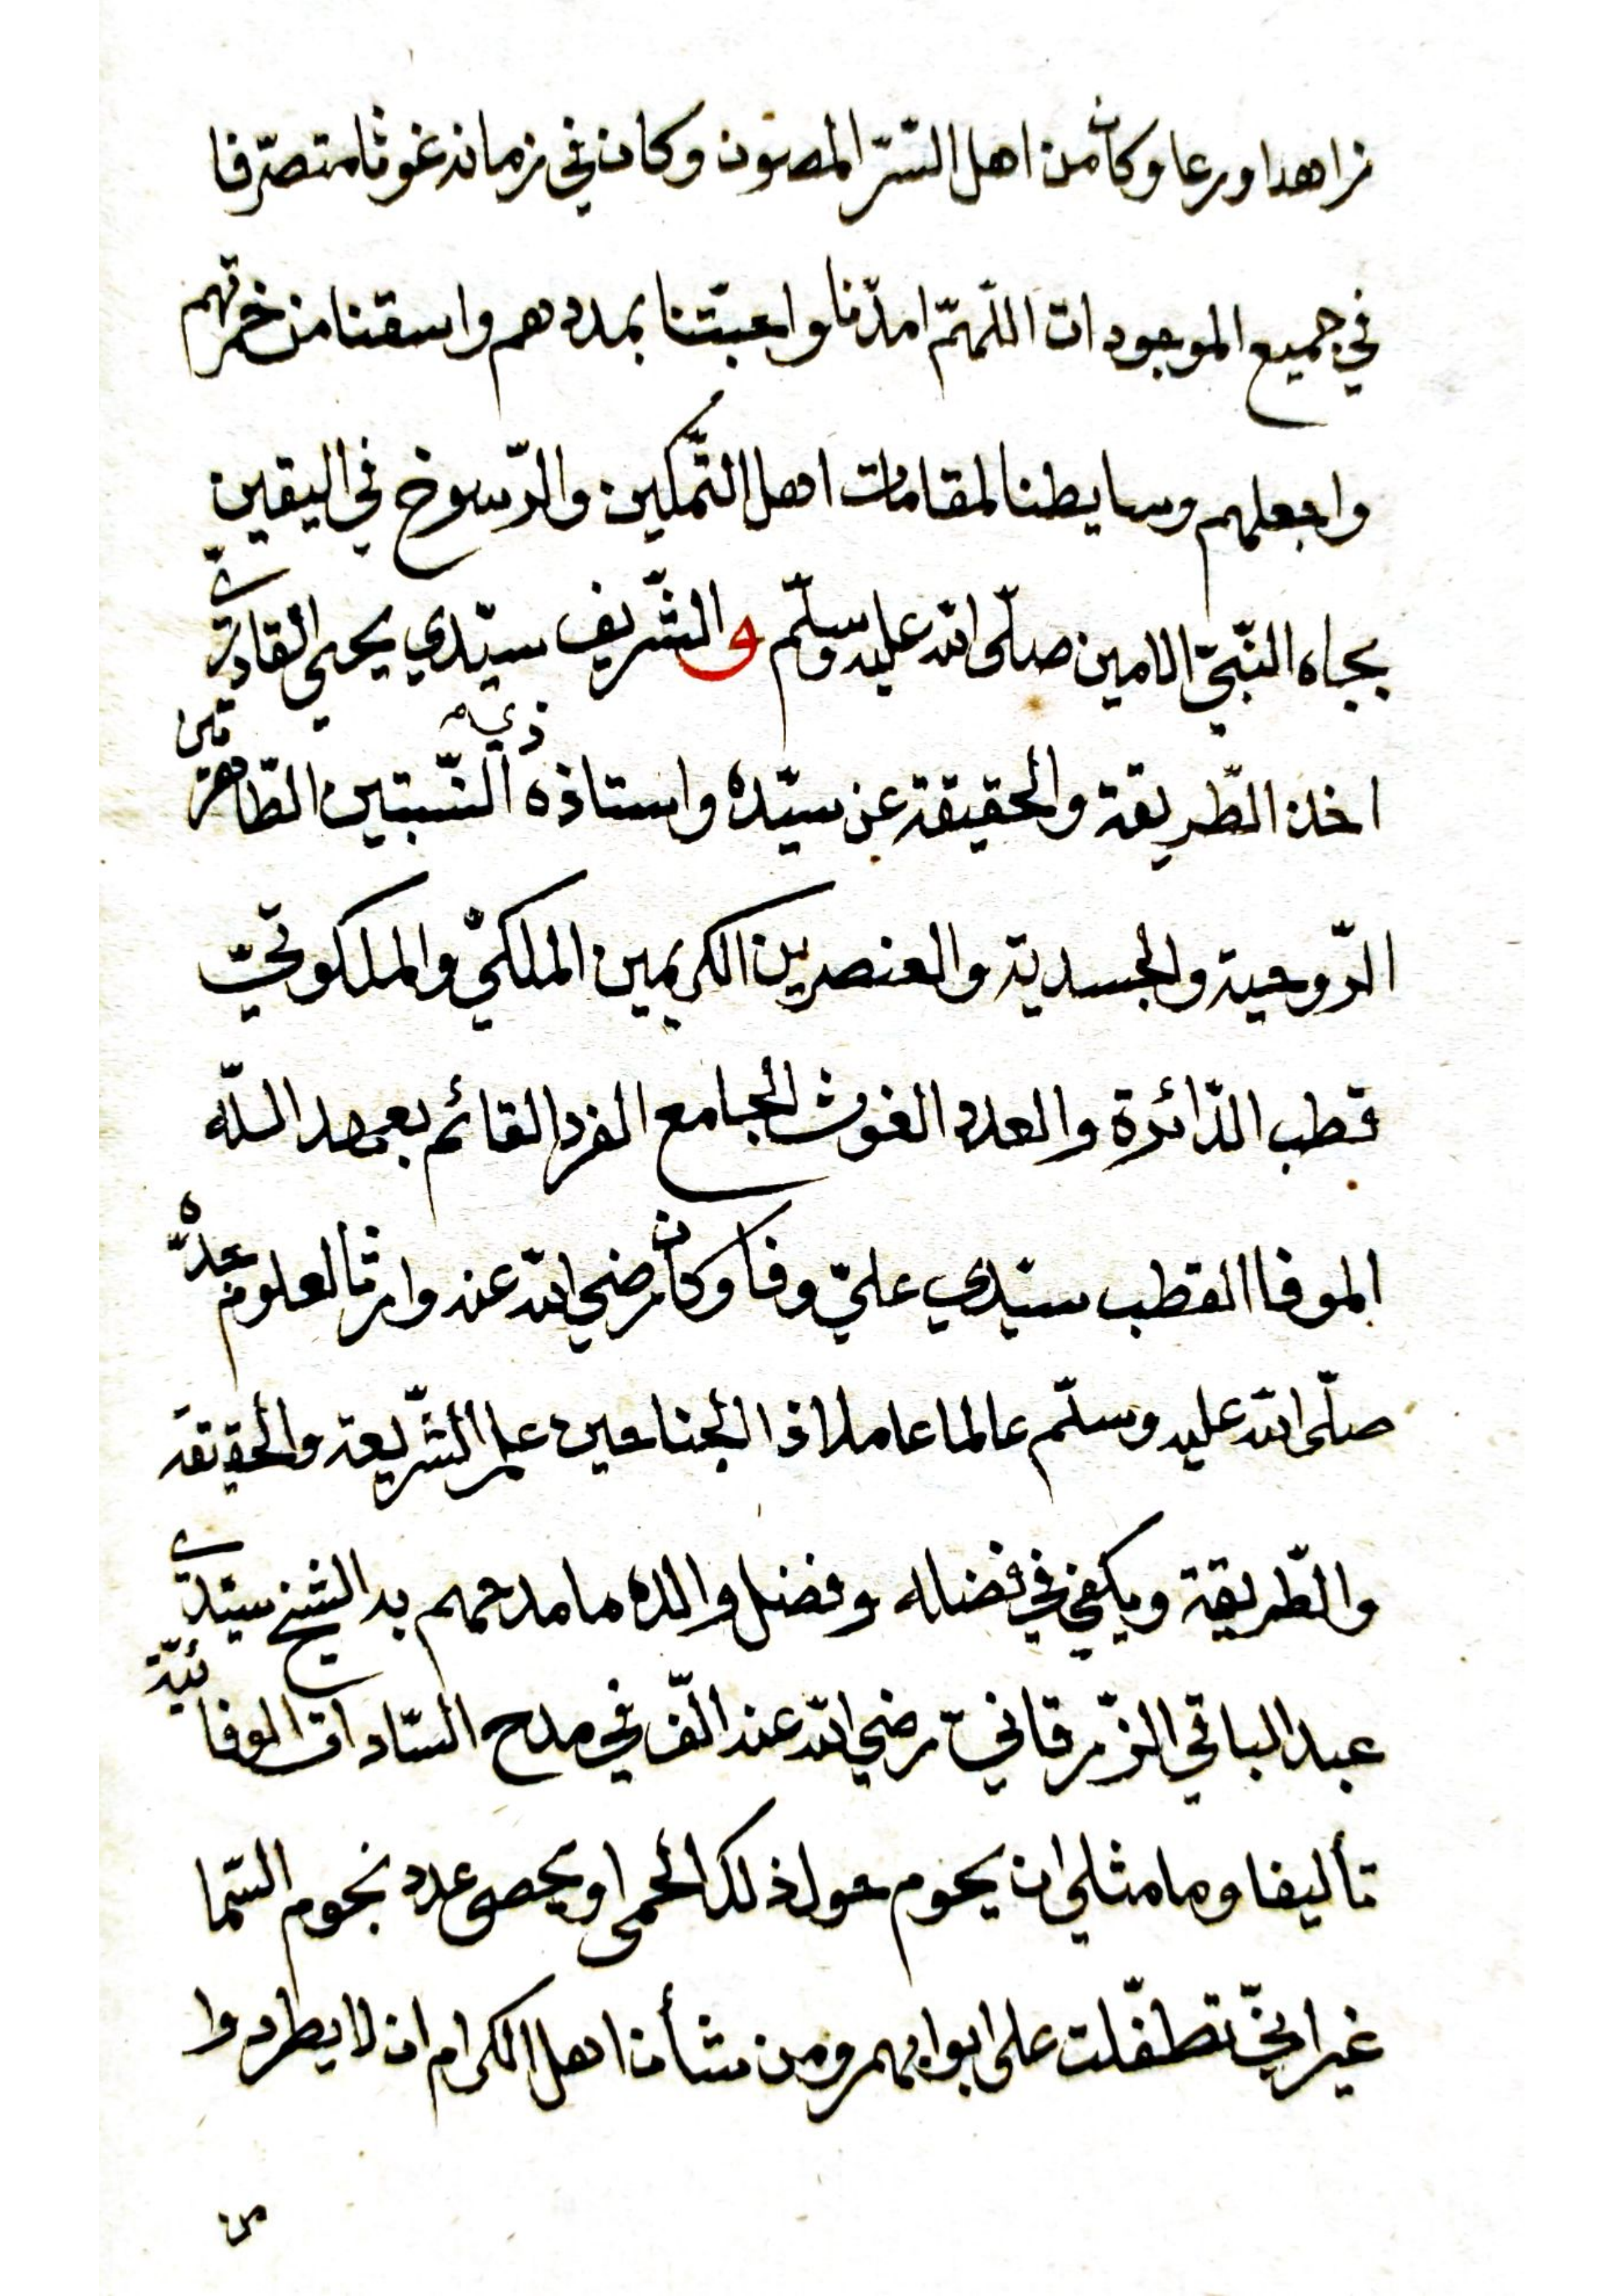 زاهدا ورعا وكان من اهل السّرّ المصون وكان في زمانه غوثا متصرّفا
في جميع الموجودات اللّهمّ امدّنا واحبّتنا بمددهم واسقنا من خمرتهم
واجعلهم وسايطنا لمقامات اهل التّمكين والرّسوخ في اليقين
بجاه النّبيّ الامين صلّى الله عليه وسلّم والشّريف سيّدي يحيى القادريّ
اخذ الطّريقة والحقيقة عن سيّده واستاذه ذي النّسبتين الطّاهرتين
الرّوحية والجسديّة والعنصرين الكريمين الملكيّ والملكوتيّ
قطب الدّائرة والعدد الغوث الجامع الفرد القائم بعهد اللّه
الموفا القطب سيّدي عليّ وفا وكان رضي الله عنه وارثا لعلوم جدّه
صلّى الله عليه وسلّم عالما عاملا ذا الجناحين علم الشّريعة والحقيقة
والطّريقة ويكفي في فضله وفضل والده ما مدحهم به الشيخ سيّدي
عبد الباقي الزّرقانيّ رضي الله عنه الّف في مدح السّادات الوفائيّة
تأليفا وما مثلي ان يحوم حول ذلك الحمى او يحصى عدد نجوم السّما
غير انّي تطفّلت على ابوابهم ومن شأن اهل الكرام ان لا يطردوا
من